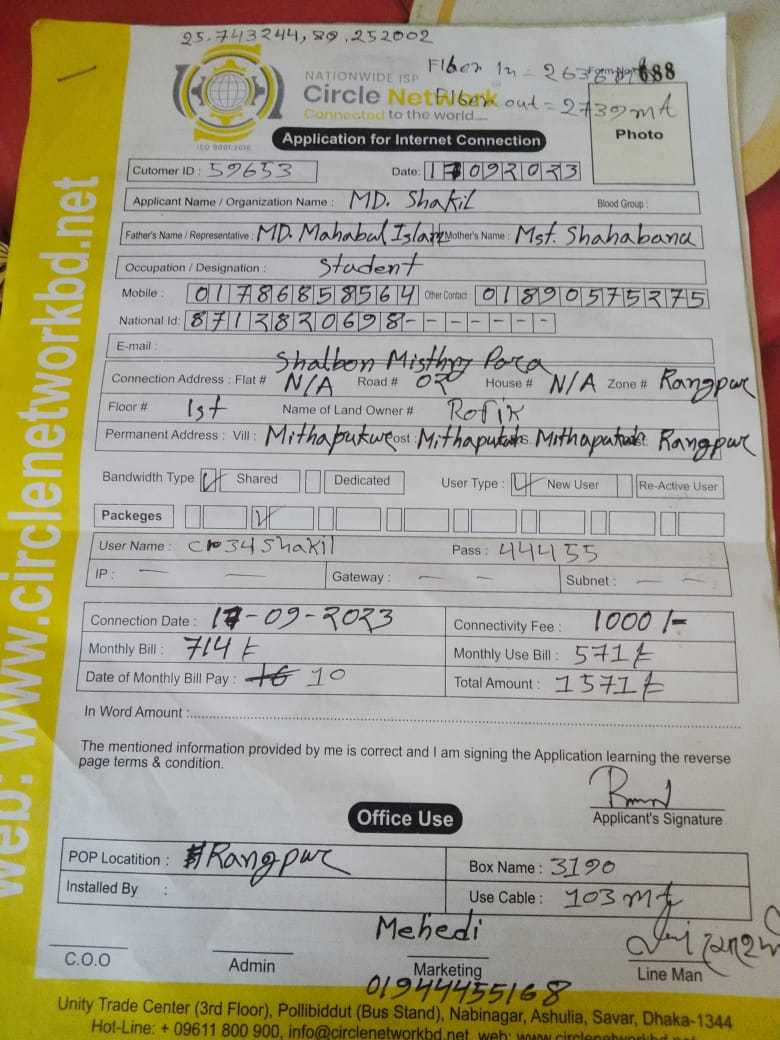 25.743244,89.252002
Fiber In = 2636
688
NATIONWIDE ISP
Circle Network
Connected to the world.....
Fiber out = 2739 mt
ISO 9001:2015
Application for Internet Connection
Photo
Cutomer ID : 59653 Date: 17092023
Applicant Name / Organization Name : MD. Shakil Blood Group :
Father's Name / Representative : MD. Mahabul Islam Mother's Name : Mst. Shahabana
Occupation / Designation : Student
Mobile : 01786858564 Other Contact : 01890575275
National Id: 8712820698-------
E-mail :
Shalbon Misthry Para
Connection Address : Flat # N/A Road # 02 House # N/A Zone # Rangpur
Floor # 1st Name of Land Owner # Rofik
Permanent Address : Vill : Mithapukur Post : Mithapukur Mithapukur Rangpur
Bandwidth Type Shared Dedicated User Type : New User Re-Active User
Packeges
User Name : Shakil Pass : 44455
IP : — — Gateway : — — Subnet : — —
Connection Date : 17-09-2023 Connectivity Fee : 1000/-
Monthly Bill : 714 t Monthly Use Bill : 571 t
Date of Monthly Bill Pay : 10 Total Amount : 1571 t
In Word Amount :
The mentioned information provided by me is correct and I am signing the Application learning the reverse
page terms & condition.
Applicant's Signature
Office Use
POP Locatition : Rangpur Box Name : 3190
Installed By : Use Cable : 103 mt
Mehedi
C.O.O Admin Marketing Line Man
01944455168
Unity Trade Center (3rd Floor), Pollibiddut (Bus Stand), Nabinagar, Ashulia, Savar, Dhaka-1344
Hot-Line: + 09611 800 900, info@circlenetworkbd.net, web: www.circlenetworkbd.net
web: www.circlenetworkbd.net